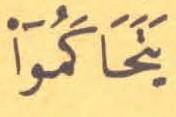 يَتَحَاكَمُوٓا۟